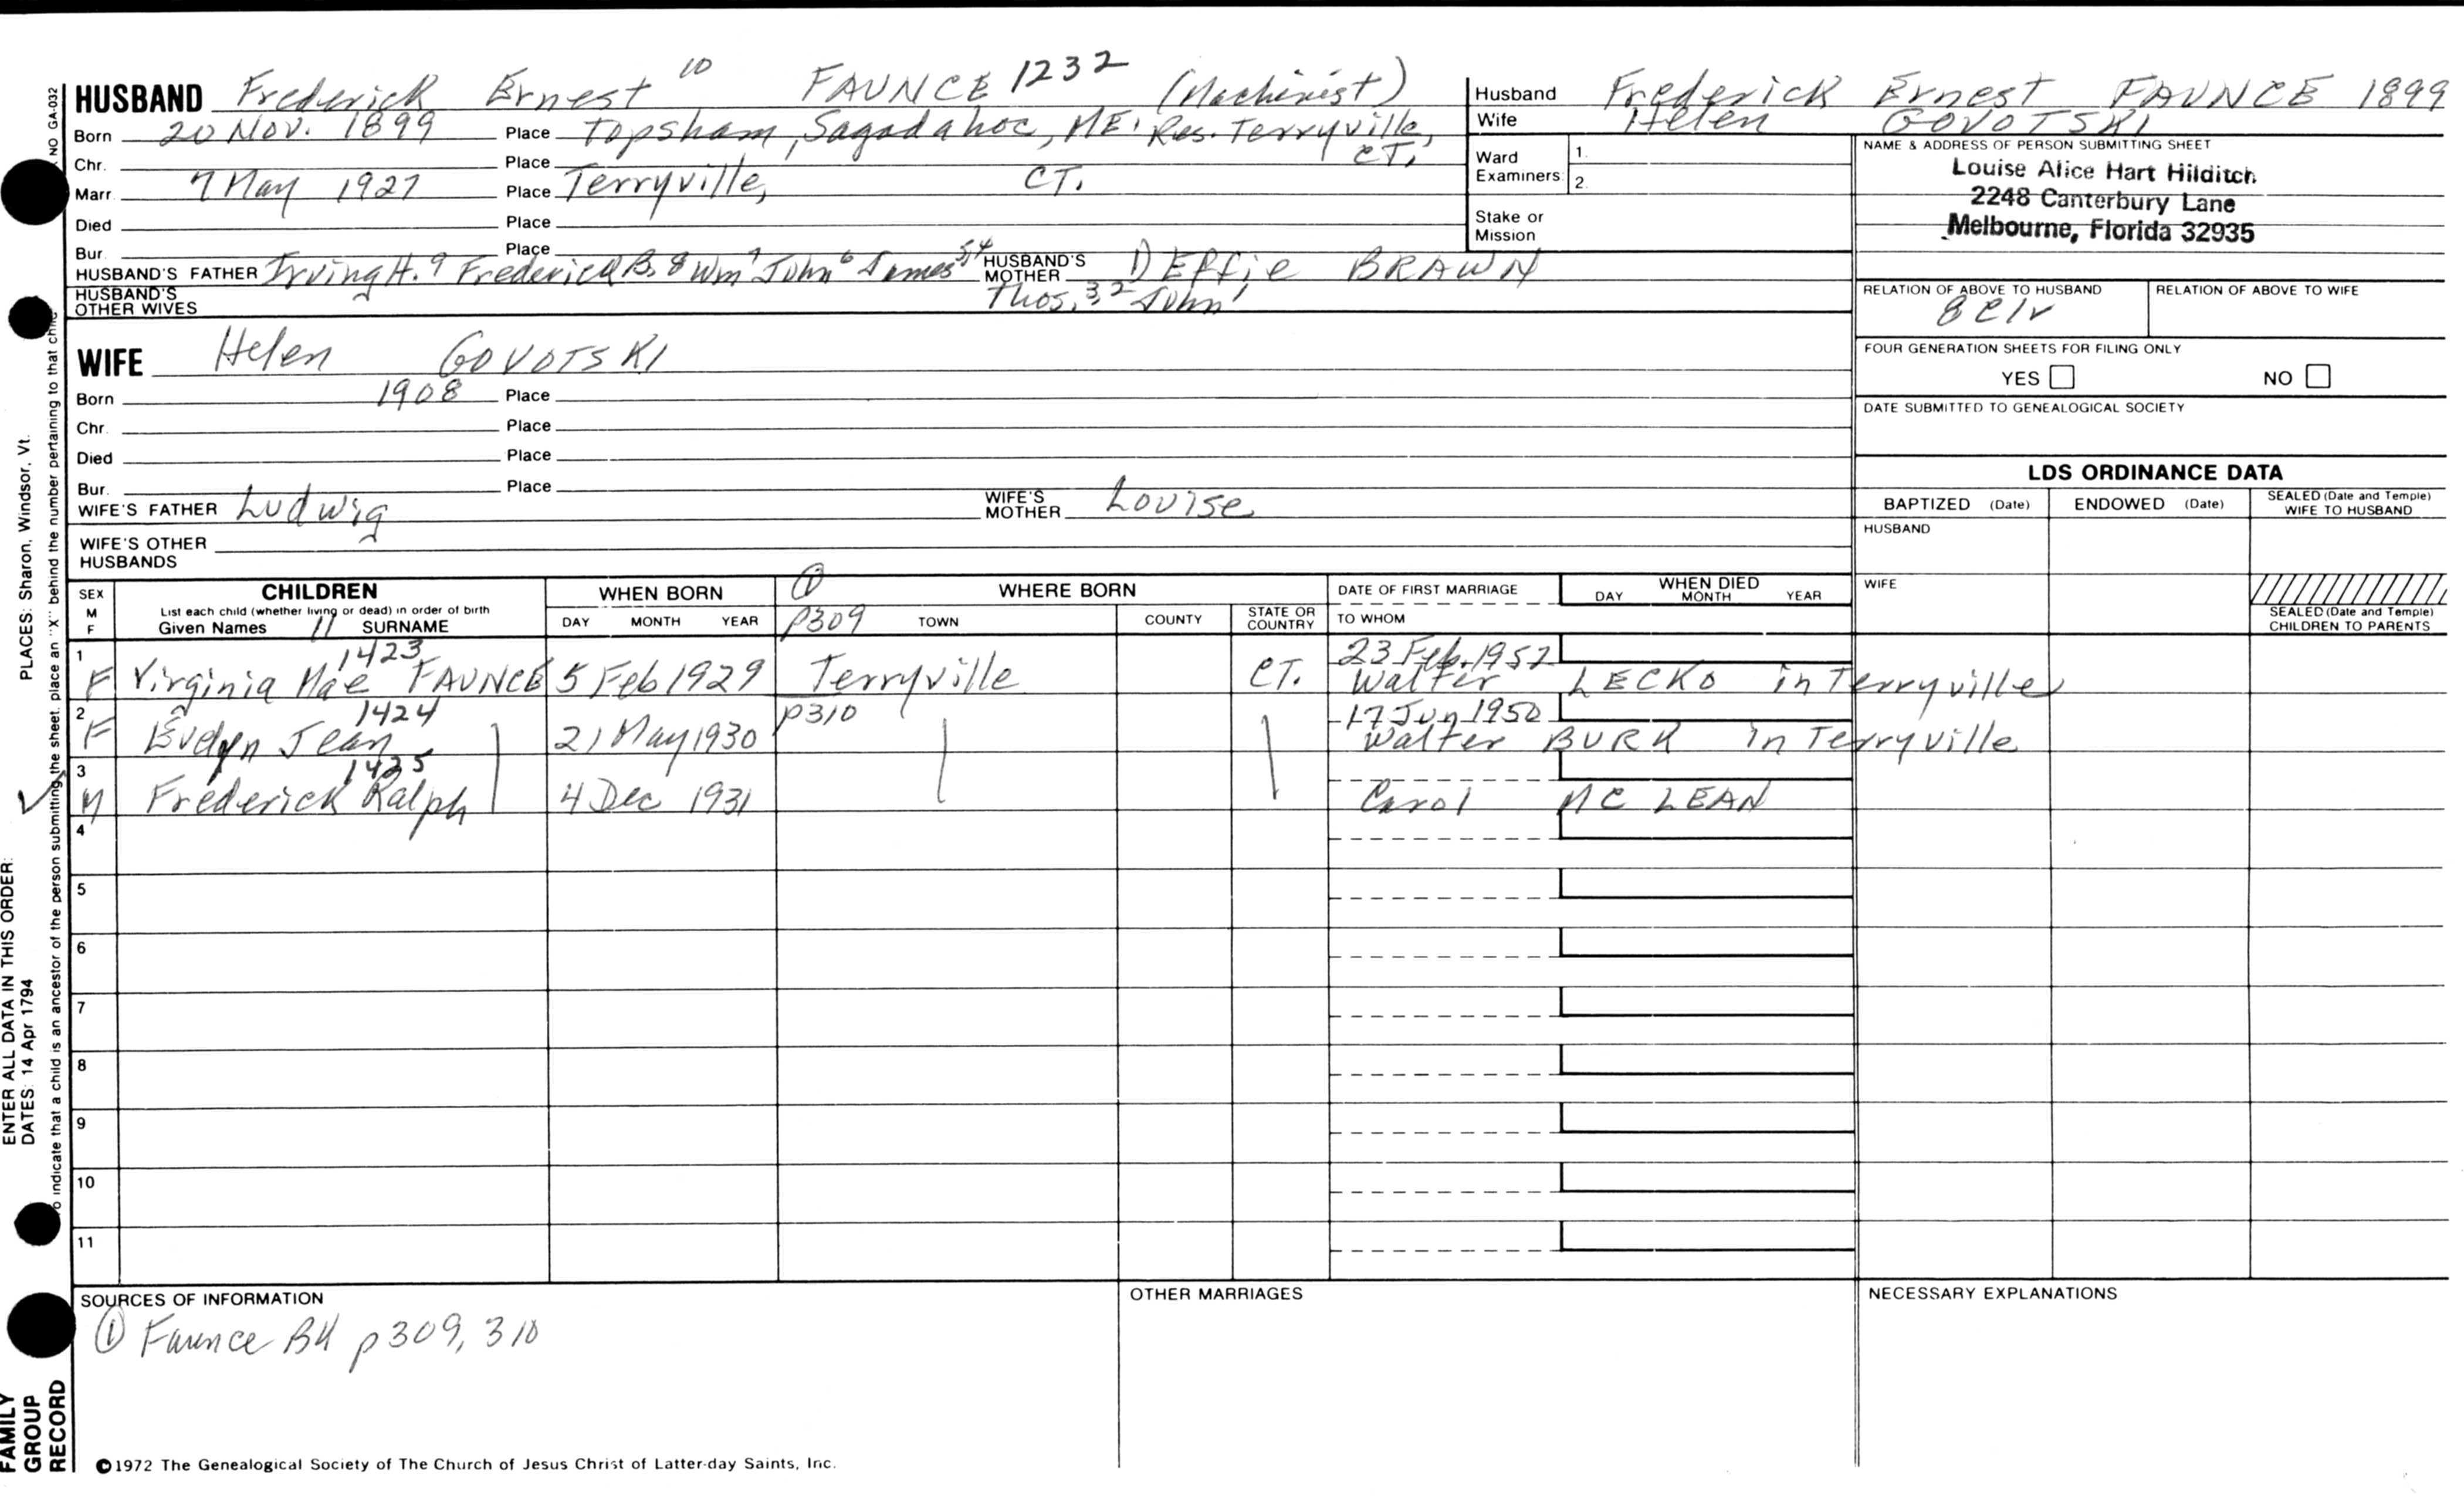 HUSBAND Frederick Ernest 10 FAUNCE 1232 (Machinist)
Born 20 Nov. 1899 Place Topsham, Sagadahoc, ME. Res. Terryville, CT.
Chr. Place
Marr 7 May 1927 Place Terryville, CT.
Died Place
Bur. Place
HUSBAND'S FATHER Irving H. 9 Frederick B. 8 Wm 7 John 6 James 5 4 Thos. 3 2 John 1
HUSBAND'S MOTHER 1) Effie BRAWN
HUSBAND'S OTHER WIVES
WIFE Helen GOVOTSKI
Born 1908 Place
Chr. Place
Died Place
Bur. Place
WIFE'S FATHER Ludwig WIFE'S MOTHER Louise
WIFE'S OTHER HUSBANDS
Husband Frederick Ernest FAUNCE 1899
Wife Helen GOVOTSKI
Ward Examiners: 1. 2.
Stake or Mission
NAME & ADDRESS OF PERSON SUBMITTING SHEET
Louise Alice Hart Hilditch
2248 Canterbury Lane
Melbourne, Florida 32935
RELATION OF ABOVE TO HUSBAND RELATION OF ABOVE TO WIFE
FOUR GENERATION SHEETS FOR FILING ONLY
YES NO
DATE SUBMITTED TO GENEALOGICAL SOCIETY
LDS ORDINANCE DATA
BAPTIZED (Date) ENDOWED (Date) SEALED (Date and Temple) WIFE TO HUSBAND
HUSBAND
WIFE
SEALED (Date and Temple) CHILDREN TO PARENTS
SEX M F
CHILDREN
List each child (whether living or dead) in order of birth
Given Names 11 SURNAME
WHEN BORN
DAY MONTH YEAR
① p309
WHERE BORN
TOWN COUNTY STATE OR COUNTRY
DATE OF FIRST MARRIAGE
TO WHOM
WHEN DIED
DAY MONTH YEAR
1 1423 23 Feb. 1952
F Virginia Mae FAUNCE 5 Feb 1929 Terryville CT. Walter LECKO in Terryville
2 1424 p310 17 Jun 1950
F Evelyn Jean 21 May 1930 Walter BURK in Terryville
3 1425
M Frederick Ralph 4 Dec 1931 Carol MC LEAN
4
5
6
7
8
9
10
11
SOURCES OF INFORMATION
① Faunce BK p309, 310
OTHER MARRIAGES
NECESSARY EXPLANATIONS
©1972 The Genealogical Society of The Church of Jesus Christ of Latter-day Saints, Inc.
NO GA-032
PLACES: Sharon, Windsor, Vt.
ENTER ALL DATA IN THIS ORDER:
DATES: 14 Apr 1794
To indicate that a child is an ancestor of the person submitting the sheet, place an "X" behind the number pertaining to that child
FAMILY GROUP RECORD